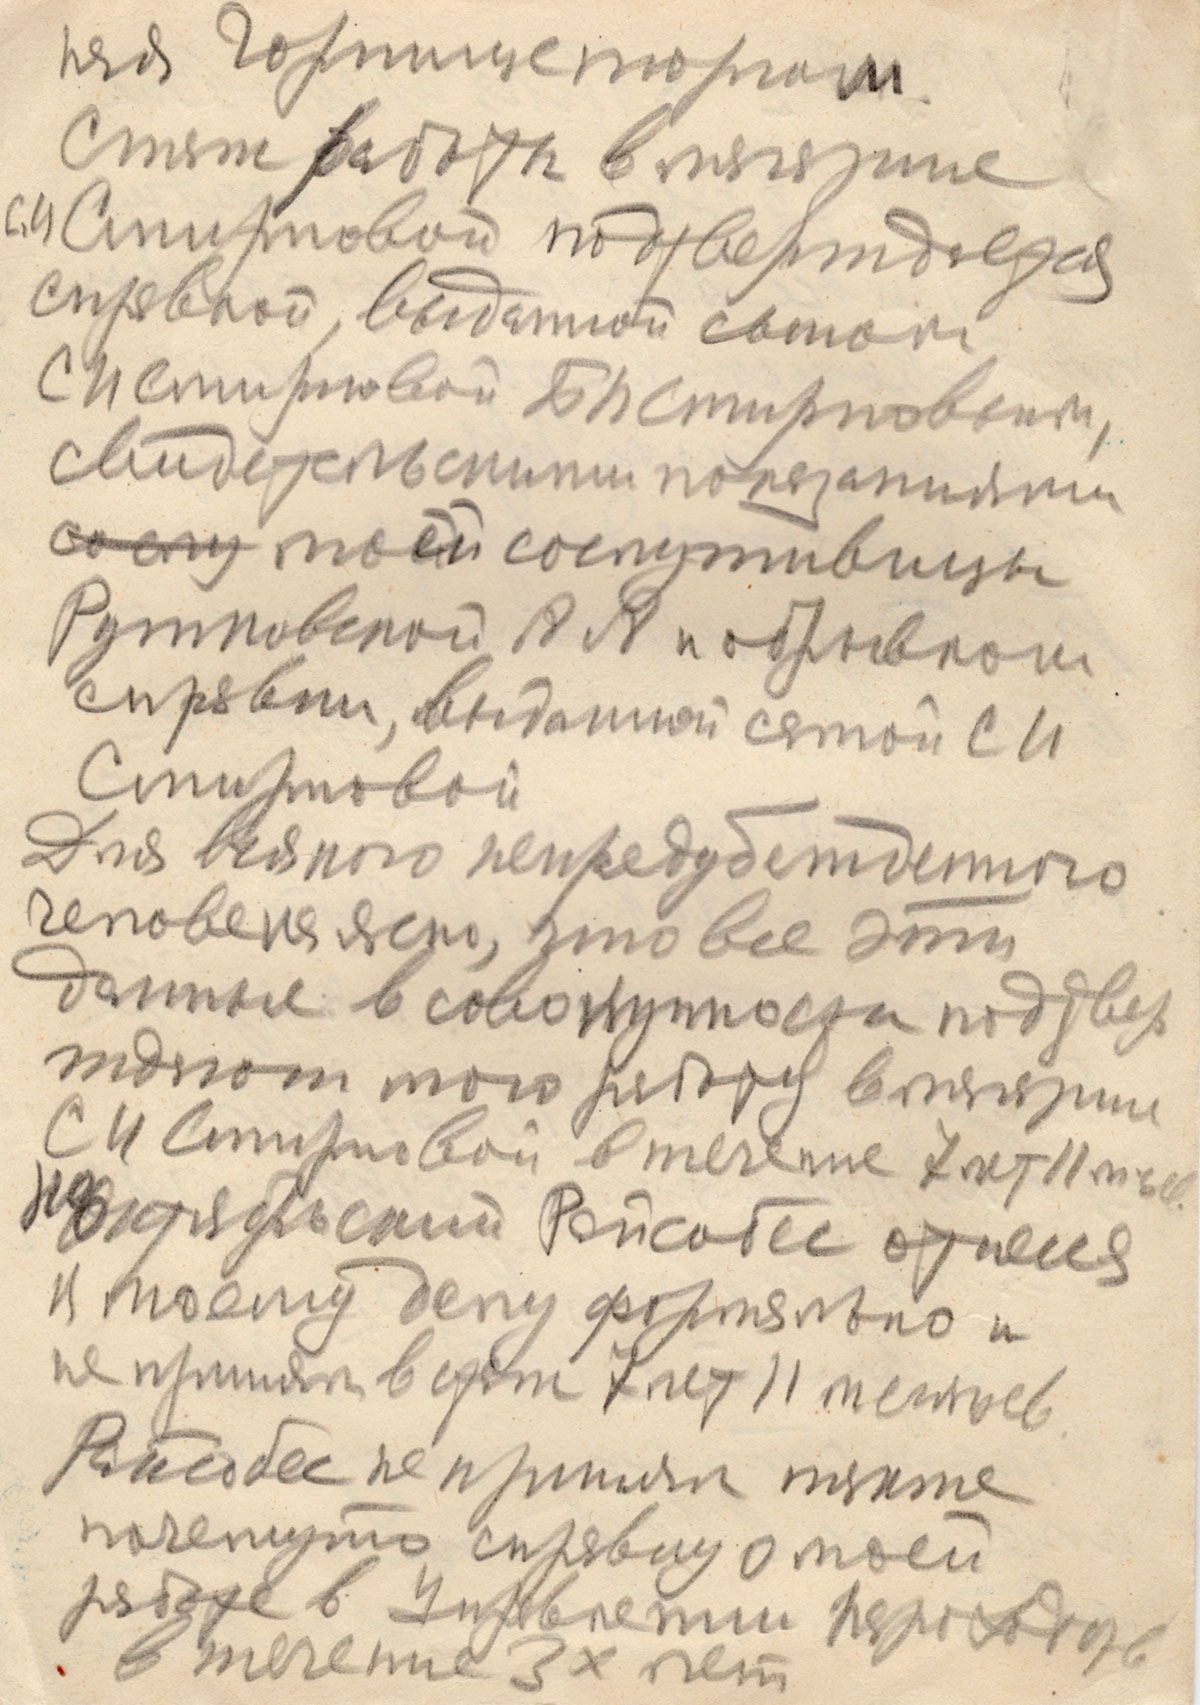 ная Горпищеторгом.
Стаж работы в магазине
С.И Смирновой подтверждается
справкой, выданной сыном
С И Смирновой Б Н Смирновым,
свидетельскими показаниями
сослу моей сослуживицы
Рутковской А А и обрывком
справки, выданной самой С И
Смирновой
Для всякого непредубежденного
человека ясно, что все эти
данные в совокупности подтвер
ждают мою работу в магазине
С И Смирновой в течение 7 лет 11 мес.
Но Октябрьский Райсобес отнесся
к моему делу формально и
не принял в стаж 7 лет 11 месяцев.
Райсобес не принял также
почемуто справку о моей
работе в Управлении пароходств
в течение 3х лет